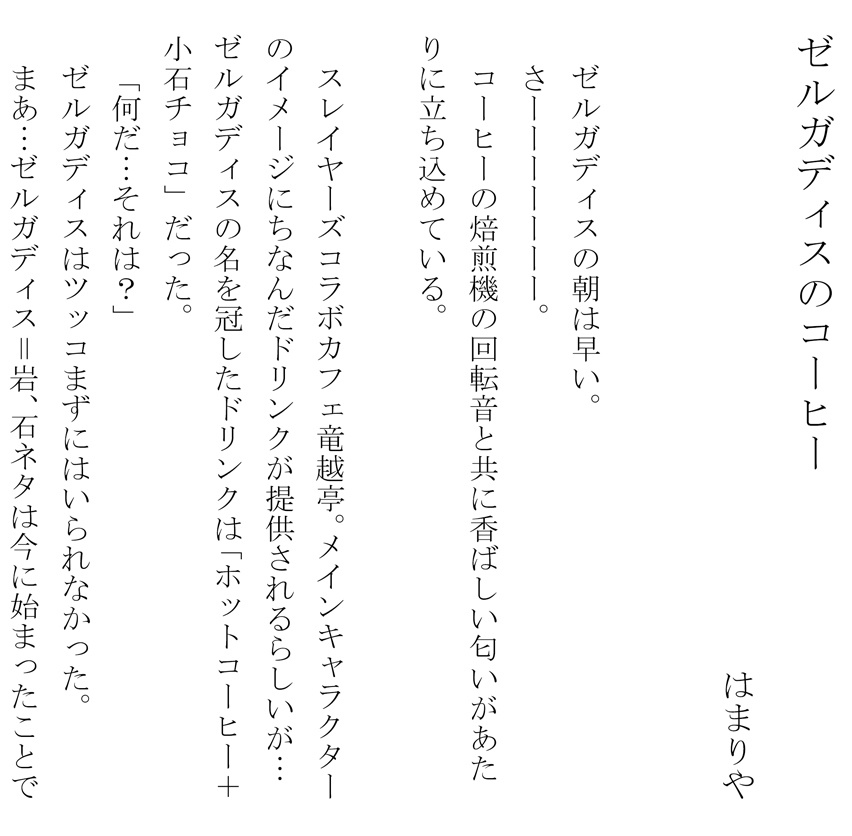 ゼルガディスのコーヒー
はまりや
ゼルガディスの朝は早い。
さーーーーーーー。
コーヒーの焙煎機の回転音と共に香ばしい匂いがあた
りに立ち込めている。
スレイヤーズコラボカフェ竜越亭。メインキャラクター
のイメージにちなんだドリンクが提供されるらしいが…
ゼルガディスの名を冠したドリンクは「ホットコーヒー＋
小石チョコ」だった。
「何だ…それは？」
ゼルガディスはツッコまずにはいられなかった。
まあ…ゼルガディス＝岩、石ネタは今に始まったことで